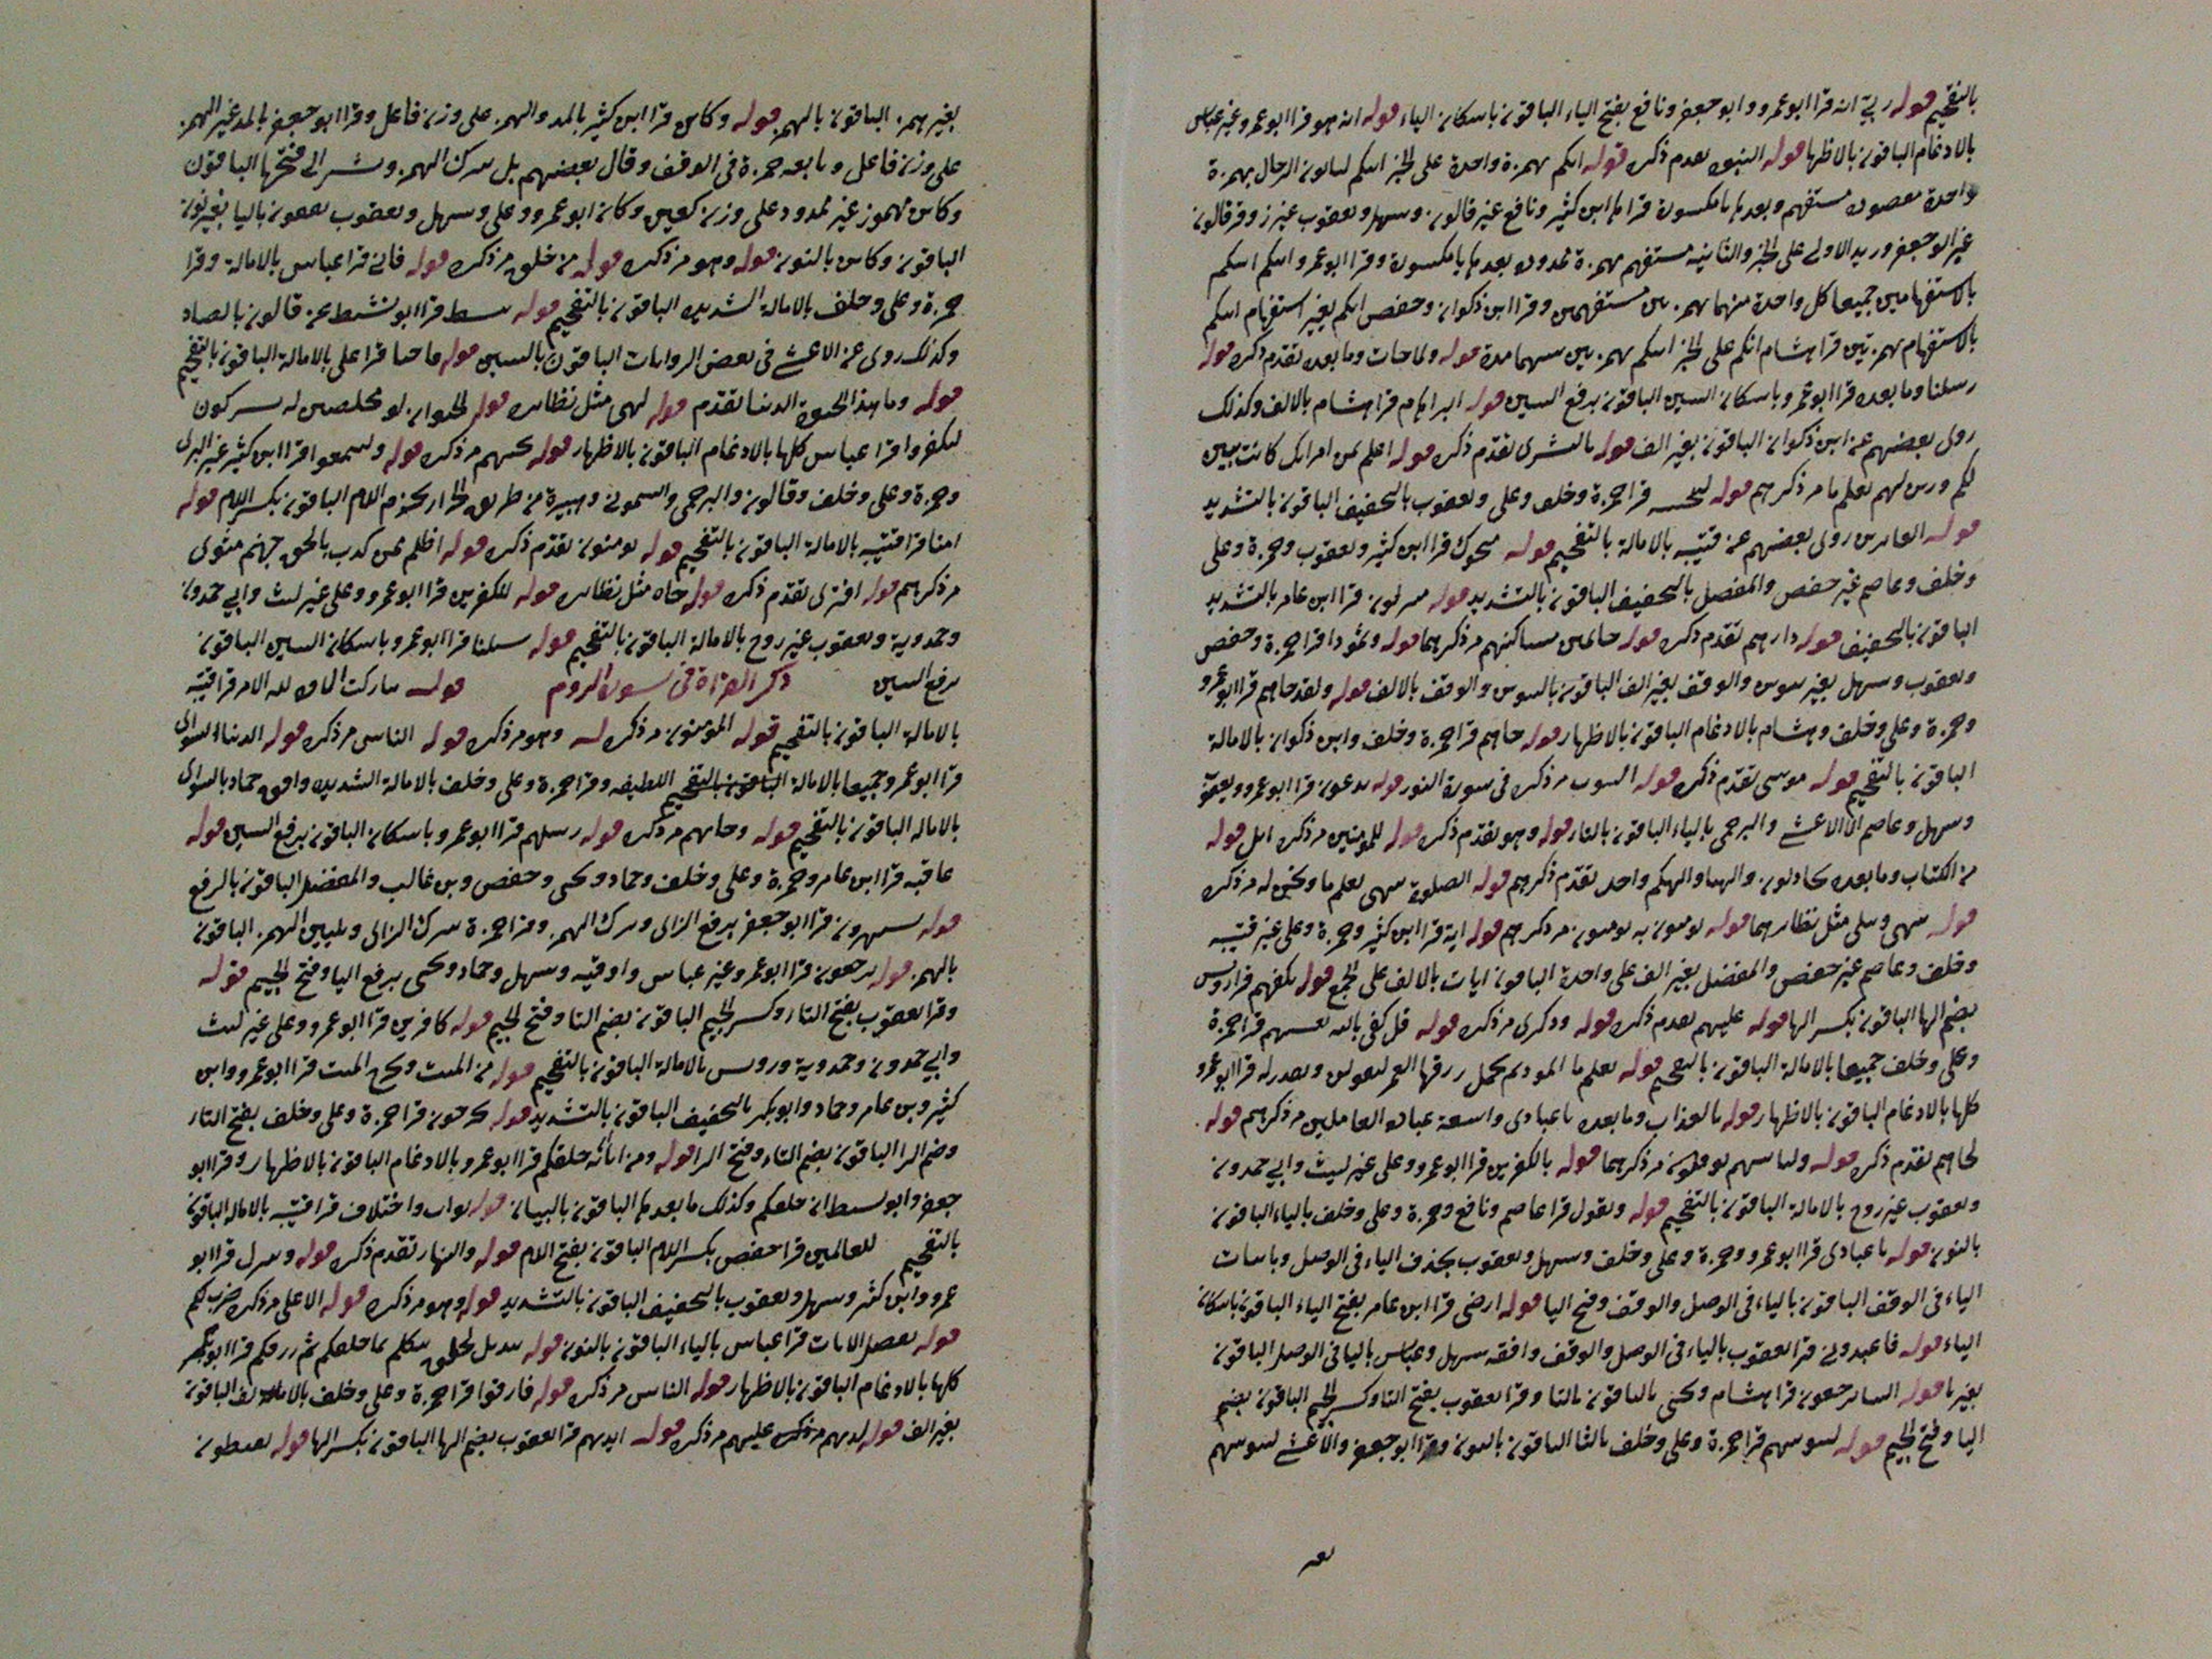 بالتفخيم قوله ربي انه قرا ابو عمرو وابو جعفر ونافع بفتح الياء الباقون باسكان الياء قوله انه هو قرا ابو عمرو غير عباس
بالادغام الباقون بالاظهار قوله النبوة تقدم ذكره قوله انكم بهمزة واحدة على الخبر انكم لتاتون الرجال بهمزة
واحدة مستفهم وبعدها يا مكسورة قراها ابن كثير ونافع غير قالون وسهل ويعقوب غير زيد وقرا قالون
غير ابو جعفر وزيد الاولى على الخبر والثانية مستفهم بهمزة ممدودة بعدها يا مكسورة وقرا ابو عمرو انكم انكم
بالاستفهامين جميعا كل واحدة منهما بهمزتين مستفهمين وقرا ابن ذكوان وحفص انكم بغير استفهام انكم
بالاستفهام بهمزتين قرا هشام انكم على الخبر انكم بهمزتين بينهما مدة قوله ولما جات وما بعده تقدم ذكره قوله
رسلنا وما بعده قرا ابو عمرو باسكان السين الباقون برفع السين قوله ابراهيم قرا هشام بالالف وكذلك
روى بعضهم عن ابن ذكوان الباقون بغير الف قوله بالبشرى تقدم ذكره قوله اعلم بمن امراتك كانت تبين
لكم وزين لهم يعلم ما مر ذكرهم قوله لننجينه قرا حمزة وخلف وعلي ويعقوب بالتخفيف الباقون بالتشديد
قوله الغابرين روى بعضهم عن قتيبه بالامالة بالتفخيم قوله منجوك قرا ابن كثير ويعقوب وحمزة وعلي
وخلف وعاصم غير حفص والمفضل بالتخفيف الباقون بالتشديد قوله منزلون قرا ابن عامر بالتشديد
الباقون بالتخفيف قوله دارهم تقدم ذكره قوله جاثمين مساكنهم مر ذكرهما قوله وثمودا قرا حمزة وحفص
ويعقوب وسهل بغير تنوين والوقف بغير الف الباقون بالتنوين والوقف بالالف قوله ولقد جاهم قرا ابو عمرو
وحمزة وعلي وخلف وهشام بالادغام الباقون بالاظهار قوله جاهم قرا حمزة وخلف وابن ذكوان بالامالة
الباقون بالتفخيم قوله موسى تقدم ذكره قوله البيوت مر ذكره في سورة النور قوله يدعون قرا ابو عمرو ويعقوب
وسهل وعاصم الا الاعشى والبرجمي بالياء الباقون بالتاء قوله وهو تقدم ذكره قوله للمومنين مر ذكره اتل قوله
من الكتاب وما بعده تجادلون والهنا والهكم واحد تقدم ذكرهم قوله الصلوة تنهى يعلم ما ونحن له مر ذكره
قوله تنهى ويتلى مثل نظائرهما قوله يومنون به يومنون مر ذكرهم قوله اية قرا ابن كثير وحمزة وعلي غير قتيبه
وخلف وعاصم غير حفص والمفضل بغير الف على واحدة الباقون ايات بالالف على الجمع قوله يكفهم قرا رويس
بضم الها الباقون بكسر الها قوله عليهم تقدم ذكره قوله وذكرى مر ذكره قوله قل كفى بالله يغشيهم قرا حمزة
وعلي وخلف جميعا بالامالة الباقون بالتفخيم قوله يعلم ما الموت ثم تحمل رزقها ليقولن ويقدر له قرا ابو عمرو
كلها بالادغام الباقون بالاظهار قوله بالعذاب وما بعده يا عبادي واسعة العاملين مر ذكرهم قوله
لجاهم تقدم ذكره قوله ولياتينهم يوفكون مر ذكرهما قوله بالكفرين قرا ابو عمرو وعلي غير ليث وابي حمدون
ويعقوب غير روح بالامالة الباقون بالتفخيم قوله ويقول قرا عاصم ونافع وحمزة وعلي وخلف بالياء الباقون
بالنون قوله يا عبادي قرا ابو عمرو وحمزة وعلي وخلف وسهل ويعقوب بحذف الياء في الوصل وباثبات
الياء في الوقف الباقون بالياء في الوصل والوقف وفتح اليا قوله ارضي قرا ابن عامر بفتح الياء الباقون باسكان
الياء قوله فاعبدوني قرا يعقوب بالياء في الوصل والوقف وافقه سهل وعباس باليا في الوصل الباقون
بغير يا قوله الينا ترجعون قرا هشام ويحيى بالياء الباقون بالتا وقرا يعقوب بفتح التا وكسر الجيم الباقون بضم
اليا وفتح الجيم قوله لنبوئنهم قرا حمزة وعلي وخلف بالثا الباقون بالنون وقرا ابو جعفر والاعشى لنبوينهم
بغير همز الباقون بالهمز قوله وكاين قرا ابن كثير بالمد والهمز على وزن فاعل وقرا ابو جعفر بالمد غير الهمز
على وزن فاعل وتابعه حمزة في الوقف وقال بعضهم بل بترك الهمز ويشير الى فتحها الباقون
وكاين مهموز غير ممدود على وزن كعين وكان ابو عمرو وعلي وسهل ويعقوب يقفون باليا بغير نون
الباقون وكاين بالنون قوله وهو مر ذكره قوله من خلق مر ذكره قوله فاني قرا عباس بالامالة وقرا
حمزة وعلي وخلف بالامالة الشديده الباقون بالتفخيم قوله يبسط قرا ابو نشيط عن قالون بالصاد
وكذلك روى عن الاعشى في بعض الروايات الباقون بالسين قوله فاحيا قرا علي بالامالة الباقون بالتفخيم
قوله وما هذا الحيوة الدنيا تقدم قوله لهي مثل نظائره قوله الحيوان لو مخلصين له يشركون
ليكفروا قرا عباس كلها بالادغام الباقون بالاظهار قوله نجيهم مر ذكره قوله وليتمتعوا قرا ابن كثير غير البزي
وحمزة وعلي وخلف وقالون والبرجمي والشموني وهبيرة من طريق الخراز بجزم اللام الباقون بكسر اللام قوله
امنا قرا قتيبه بالامالة الباقون بالتفخيم قوله يومنون تقدم ذكره قوله اظلم ممن كذب بالحق جهنم مثوى
مر ذكرهم قوله افترى تقدم ذكره قوله جاه مثل نظائره قوله للكفرين قرا ابو عمرو وعلي غير ليث وابي حمدون
وحمدوية ويعقوب غير روح بالامالة الباقون بالتفخيم قوله سبلنا قرا ابو عمرو باسكان السين الباقون
برفع السين ذكر القراة في سورة الروم قوله لله الامر قرا قتيبه
بالامالة الباقون بالتفخيم قوله المومنون مر ذكره وهو مر ذكره قوله الناس مر ذكره قوله الدنيا السواى
قرا ابو عمرو جميعا بالامالة اللطيفه وقرا حمزة وعلي وخلف بالامالة الشديده وافق حماد بالسواى
بالاماله الباقون بالتفخيم قوله وجاتهم مر ذكره قوله رسلهم قرا ابو عمرو باسكان الباقون برفع السين قوله
عاقبه قرا ابن عامر وحمزة وعلي وخلف وحماد ويحيى وحفص وبن غالب والمفضل الباقون بالرفع
قوله يستهزون قرا ابو جعفر برفع الزاى وترك الهمز وقرا حمزة بترك الزاى وتليين الهمز الباقون
بالهمز قوله يرجعون قرا ابو عمرو غير عباس واوقيه وسهل وحماد ويحيى برفع اليا وفتح الجيم قوله
وقرا يعقوب بفتح التاء وكسر الجيم الباقون بضم التا وفتح الجيم قوله كافرين قرا ابو عمرو وعلي غير ليث
وابي حمدون وحمدوية ورويس بالامالة الباقون بالتفخيم قوله من الميت ويخرج الميت قرا ابو عمرو وابن
كثير وبن عامر وحماد وابو بكر بالتخفيف الباقون بالتشديد قوله تخرجون قرا حمزة وعلي وخلف بفتح التاء
وضم الرا الباقون بضم التاء وفتح الرا قوله ومن اياته خلقكم قرا ابو عمرو بالادغام الباقون بالاظهار وقرا ابو
جعفر وابو نشيط ان خلقكم وكذلك ما بعدها الباقون بالبيان قوله واختلاف قرا قتيبه بالاماله الباقون
بالتفخيم للعالمين قرا حفص بكسر اللام الباقون بفتح اللام قوله والنهار تقدم ذكره قوله وينزل قرا ابو
عمرو وابن كثير وسهل ويعقوب بالتخفيف الباقون بالتشديد قوله وهو مر ذكره قوله الاعلى مر ذكره ضرب لكم
قوله نفصل الايات قرا عباس بالياء الباقون بالنون قوله تبديل لخلق خلقكم ثم رزقكم قرا ابو بكر
كلها بالادغام الباقون بالاظهار قوله الناس مر ذكره قوله فارقوا قرا حمزة وعلي وخلف بالالف الباقون
بغير الف قوله لديهم مر ذكره عليهم مر ذكره قوله ايديهم قرا يعقوب بضم الها الباقون بكسر الها قوله يقنطون